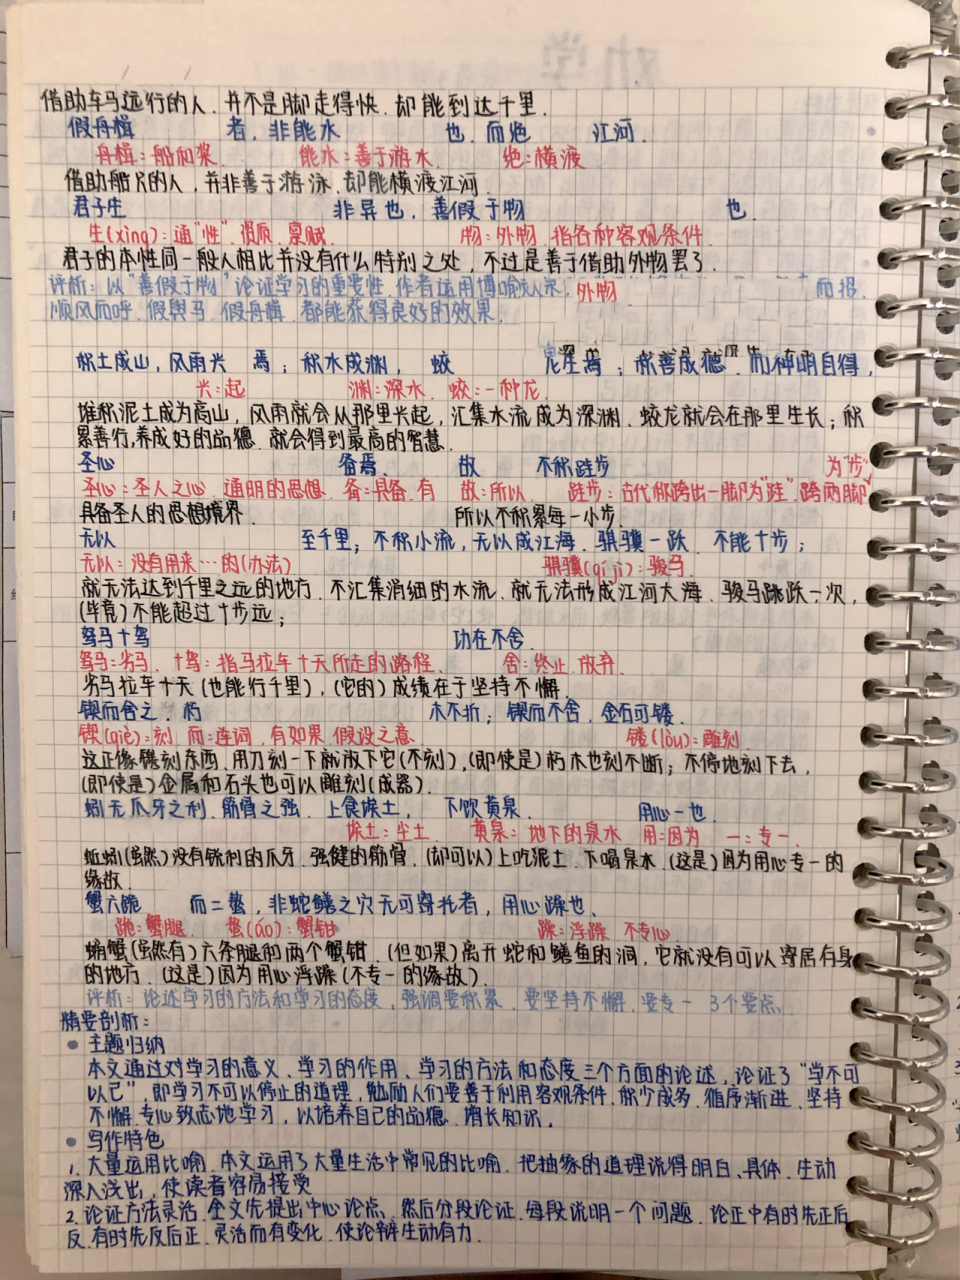 借助车马远行的人,并不是脚走得快,却能到达千里.
假舟楫 者,非能水 也,而绝 江河.
舟楫:船和桨. 能水:善于游水. 绝:横渡
借助船只的人,并非善于游泳,却能横渡江河.
君子生 非异也,善假于物 也.
生(xìng):通"性",资质,禀赋. 物:外物,指各种客观条件.
君子的本性同一般人相比并没有什么特别之处,不过是善于借助外物罢了.
评析:以"善假于物"论证学习的重要性,作者运用博喻 外物 而招,
顺风而呼,假舆马,假舟楫,都能获得良好的效果.
积土成山,风雨兴 焉;积水成渊, 蛟 生焉;积善成德,而神明自得,
兴:起 渊:深水. 蛟:一种龙.
堆积泥土成为高山,风雨就会从那里兴起,汇集水流成为深渊,蛟龙就会在那里生长;积
累善行,养成好的品德,就会得到最高的智慧.
圣心 备焉. 故 不积跬步 为"步"
圣心:圣人之心,通明的思想. 备:具备,有 故:所以. 跬步:古代称跨出一脚为"跬",跨两脚
具备圣人的思想境界. 所以不积累每一小步.
无以 至千里;不积小流,无以成江海.骐骥一跃,不能十步;
无以:没有用来…的(办法) 骐骥(qí jì):骏马.
就无法达到千里之远的地方.不汇集涓细的水流,就无法形成江河大海.骏马跳跃一次,
(毕竟)不能超过十步远;
驽马十驾 功在不舍.
驽马:劣马. 十驾:指马拉车十天所走的路程. 舍:终止,放弃.
劣马拉车十天(也能行千里),(它的)成绩在于坚持不懈.
锲而舍之,朽 木不折;锲而不舍,金石可镂.
锲(qiè):刻 而:连词,有如果,假设之意 镂(lòu):雕刻.
这正像镌刻东西,用刀刻一下就放下它(不刻),(即使是)朽木也刻不断;不停地刻下去,
(即使是)金属和石头也可以雕刻(成器).
蚓无爪牙之利,筋骨之强,上食埃土, 下饮黄泉. 用心一也.
埃土:尘土. 黄泉:地下的泉水 用:因为 一:专一.
蚯蚓(虽然)没有锐利的爪牙,强健的筋骨,(却可以)上吃泥土,下喝泉水,(这是)因为用心专一的
缘故.
蟹六跪 而二螯,非蛇鳝之穴无可寄托者,用心躁也.
跪:蟹腿. 螯(áo):蟹钳 躁:浮躁,不专心.
螃蟹(虽然有)六条腿和两个蟹钳,(但如果)离开蛇和鳝鱼的洞,它就没有可以寄居存身
的地方,(这是)因为用心浮躁(不专一的缘故).
评析:论述学习的方法和学习的态度,强调要积累,要坚持不懈,要专一 3个要点.
精要剖析:
● 主题归纳
本文通过对学习的意义、学习的作用、学习的方法和态度三个方面的论述,论证了"学不可
以已",即学习不可以停止的道理,勉励人们要善于利用客观条件,积少成多,循序渐进,坚持
不懈,专心致志地学习,以培养自己的品德,增长知识.
● 写作特色
1.大量运用比喻.本文运用了大量生活中常见的比喻,把抽象的道理说得明白、具体,生动
深入浅出,使读者容易接受
2.论证方法灵活.全文先提出中心论点,然后分段论证,每段说明一个问题,论证中有时先正后
反,有时先反后正,灵活而有变化,使论辩生动有力.